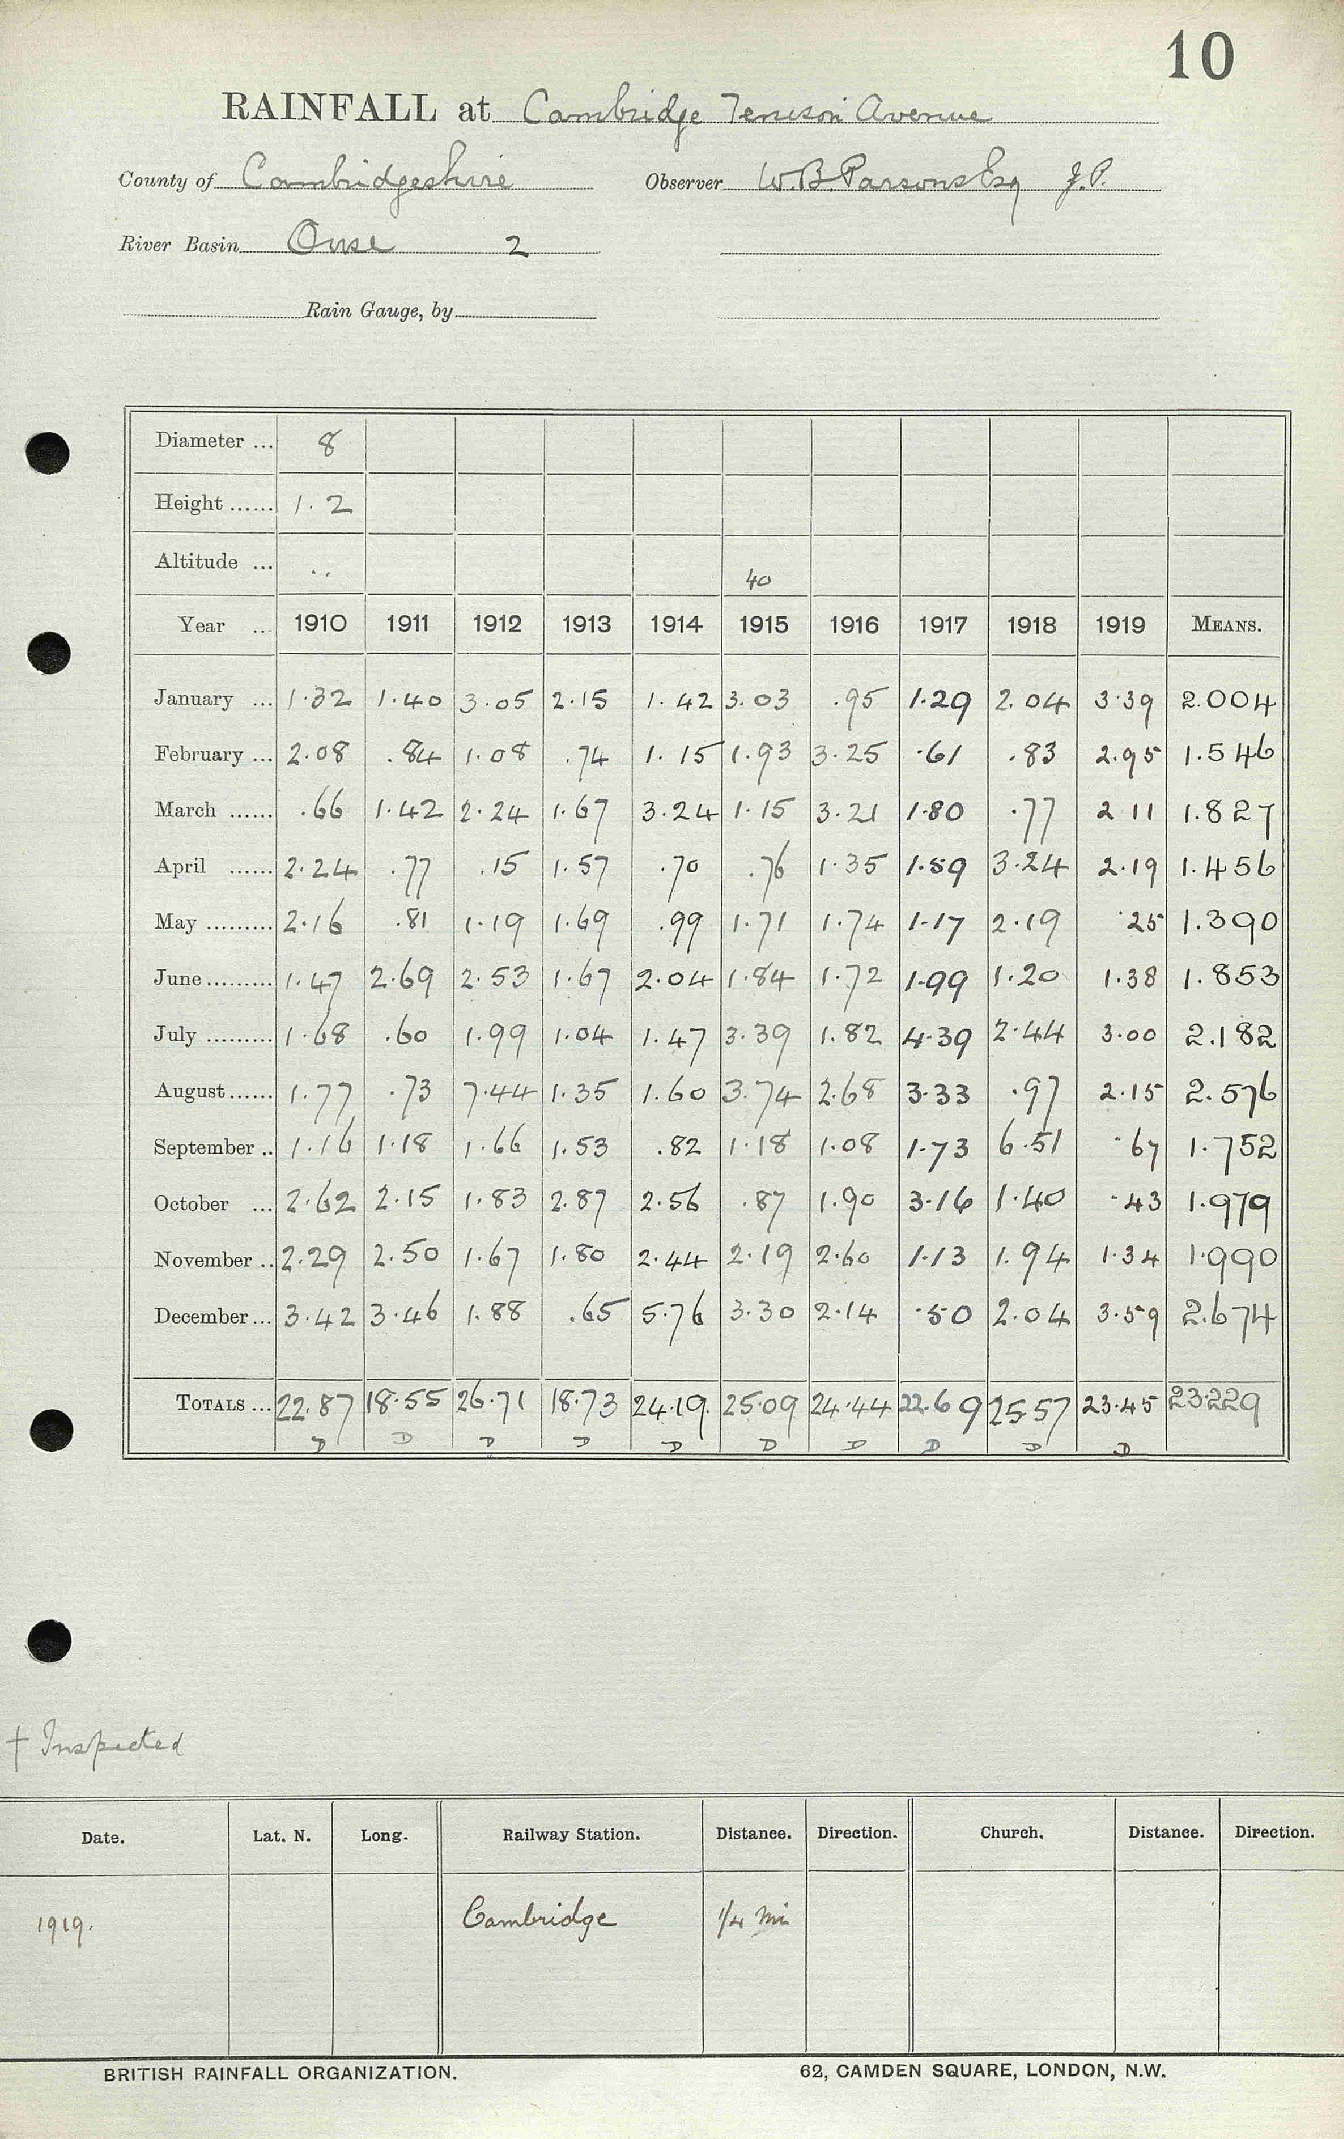 10
RAINFALL at Cambridge Tenison Avenue
County of Cambridgeshire Observer W.B. Parsons Esq J.P.
River Basin Ouse 2
Rain Gauge, by
Diameter ... 8
Height ...... 1.2
Altitude ... .. 40
Year ... 1910 1911 1912 1913 1914 1915 1916 1917 1918 1919 MEANS.
January ... 1.32 1.40 3.05 2.15 1.42 3.03 .95 1.29 2.04 3.39 2.004
February ... 2.08 .84 1.08 .74 1.15 1.93 3.25 .61 .83 2.95 1.546
March ...... .66 1.42 2.24 1.67 3.24 1.15 3.21 1.80 .77 2.11 1.827
April ...... 2.24 .77 .15 1.57 .70 .76 1.35 1.59 3.24 2.19 1.456
May ......... 2.16 .81 1.19 1.69 .99 1.71 1.74 1.17 2.19 .25 1.390
June ......... 1.47 2.69 2.53 1.67 2.04 1.84 1.72 1.99 1.20 1.38 1.853
July ......... 1.68 .60 1.99 1.04 1.47 3.39 1.82 4.39 2.44 3.00 2.182
August ...... 1.77 .73 7.44 1.35 1.60 3.74 2.68 3.33 .97 2.15 2.576
September .. 1.16 1.18 1.66 1.53 .82 1.18 1.08 1.73 6.51 .67 1.752
October ... 2.62 2.15 1.83 2.87 2.56 .87 1.90 3.16 1.40 .43 1.979
November .. 2.29 2.50 1.67 1.80 2.44 2.19 2.60 1.13 1.94 1.34 1.990
December ... 3.42 3.46 1.88 .65 5.76 3.30 2.14 .50 2.04 3.59 2.674
TOTALS ... 22.87 18.55 26.71 18.73 24.19. 25.09 24.44 22.69 25.57 23.45 23.229
D D D D D D D D D D
† Inspected
Date. Lat. N. Long. Railway Station. Distance. Direction. Church. Distance. Direction.
1919. Cambridge 1/4 mi
BRITISH RAINFALL ORGANIZATION. 62, CAMDEN SQUARE, LONDON, N.W.